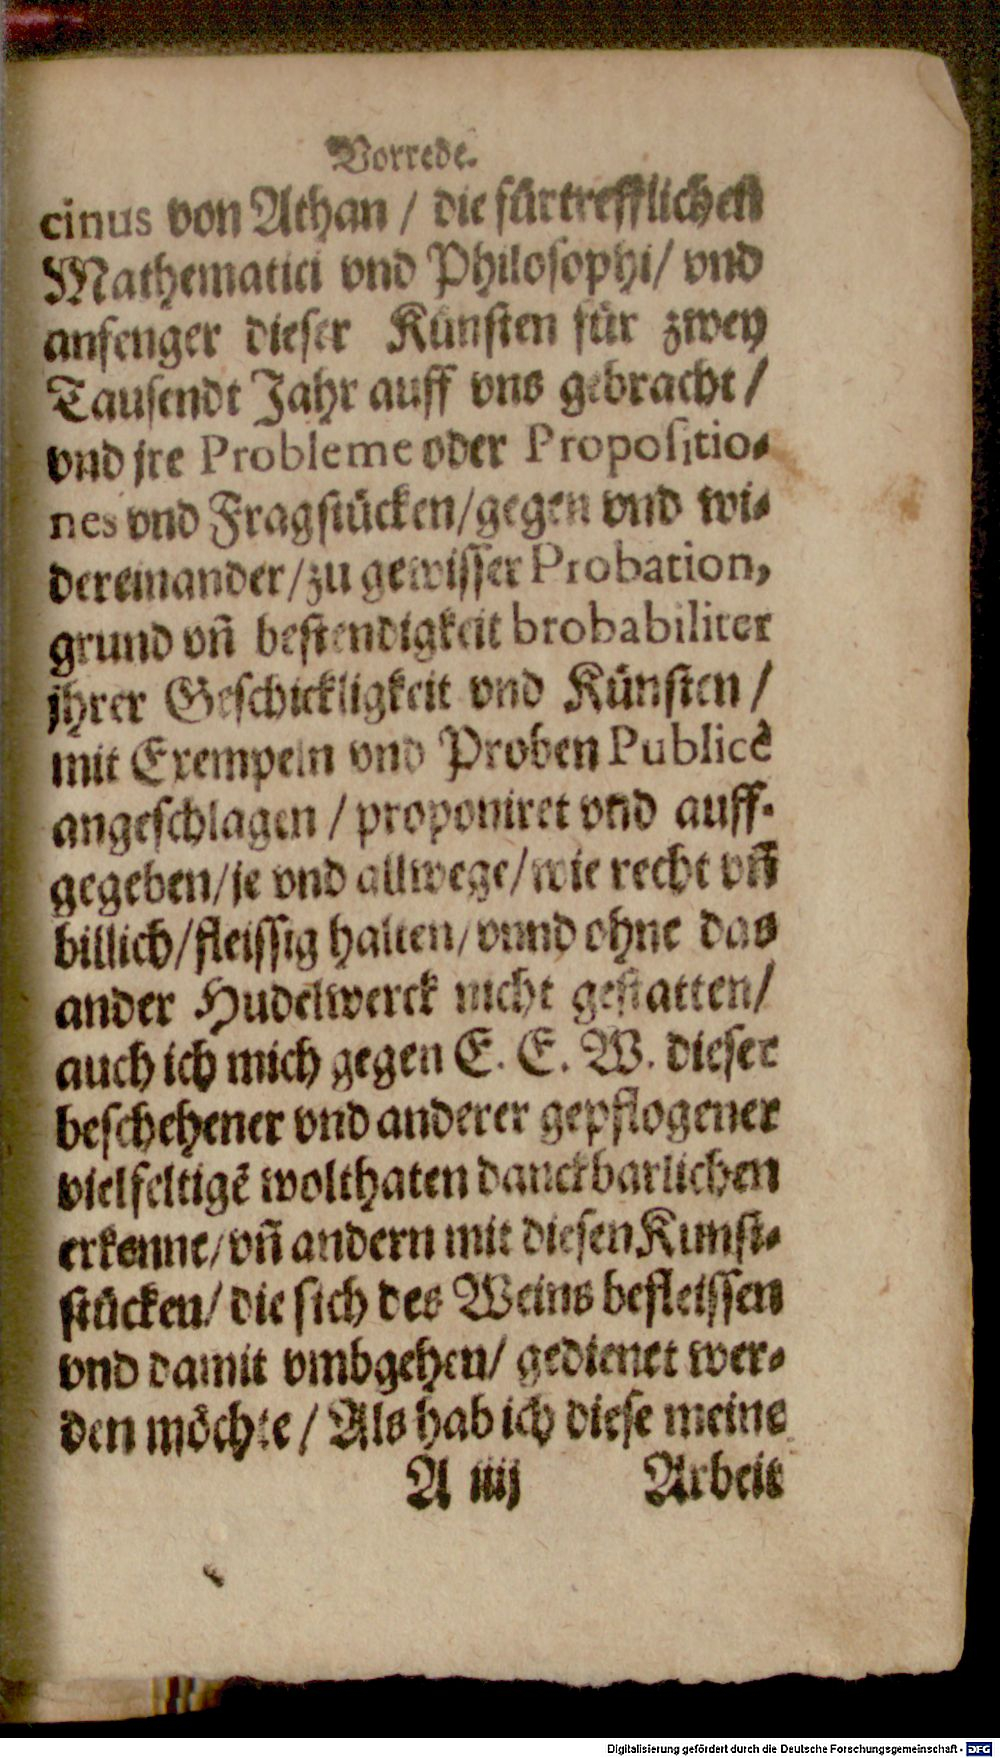 Vorrede.
cinus von Athan / die fürtrefflichen
Mathematici vnd Philosophi / vnd
anfenger dieser Künsten für zwey
Tausendt Jahr auff vns gebracht /
vnd jre Probleme oder Propositio-
nes vnd Fragstücken / gegen vnd wi-
dereinander / zu gewisser Probation,
grund vñ bestendigkeit brobabiliter
jhrer Geschickligkeit vnd Künsten /
mit Exempeln vnd Proben Publicè
angeschlagen / proponiret vnd auff-
gegeben / je vnd allwege / wie recht vñ
billich / fleissig halten / vnnd ohne das
ander Hudelwerck nicht gestatten /
auch ich mich gegen E. E. W. dieser
beschehener vnd anderer gepflogener
vielfeltigẽ wolthaten danckbarlichen
erkenne / vñ andern mit diesen Kunst-
stücken / die sich des Weins befleissen
vnd damit vmbgehen / gedienet wer-
den möchte / Als hab ich diese meine
A iiij Arbeit
Digitalisierung gefördert durch die Deutsche Forschungsgemeinschaft - DFG